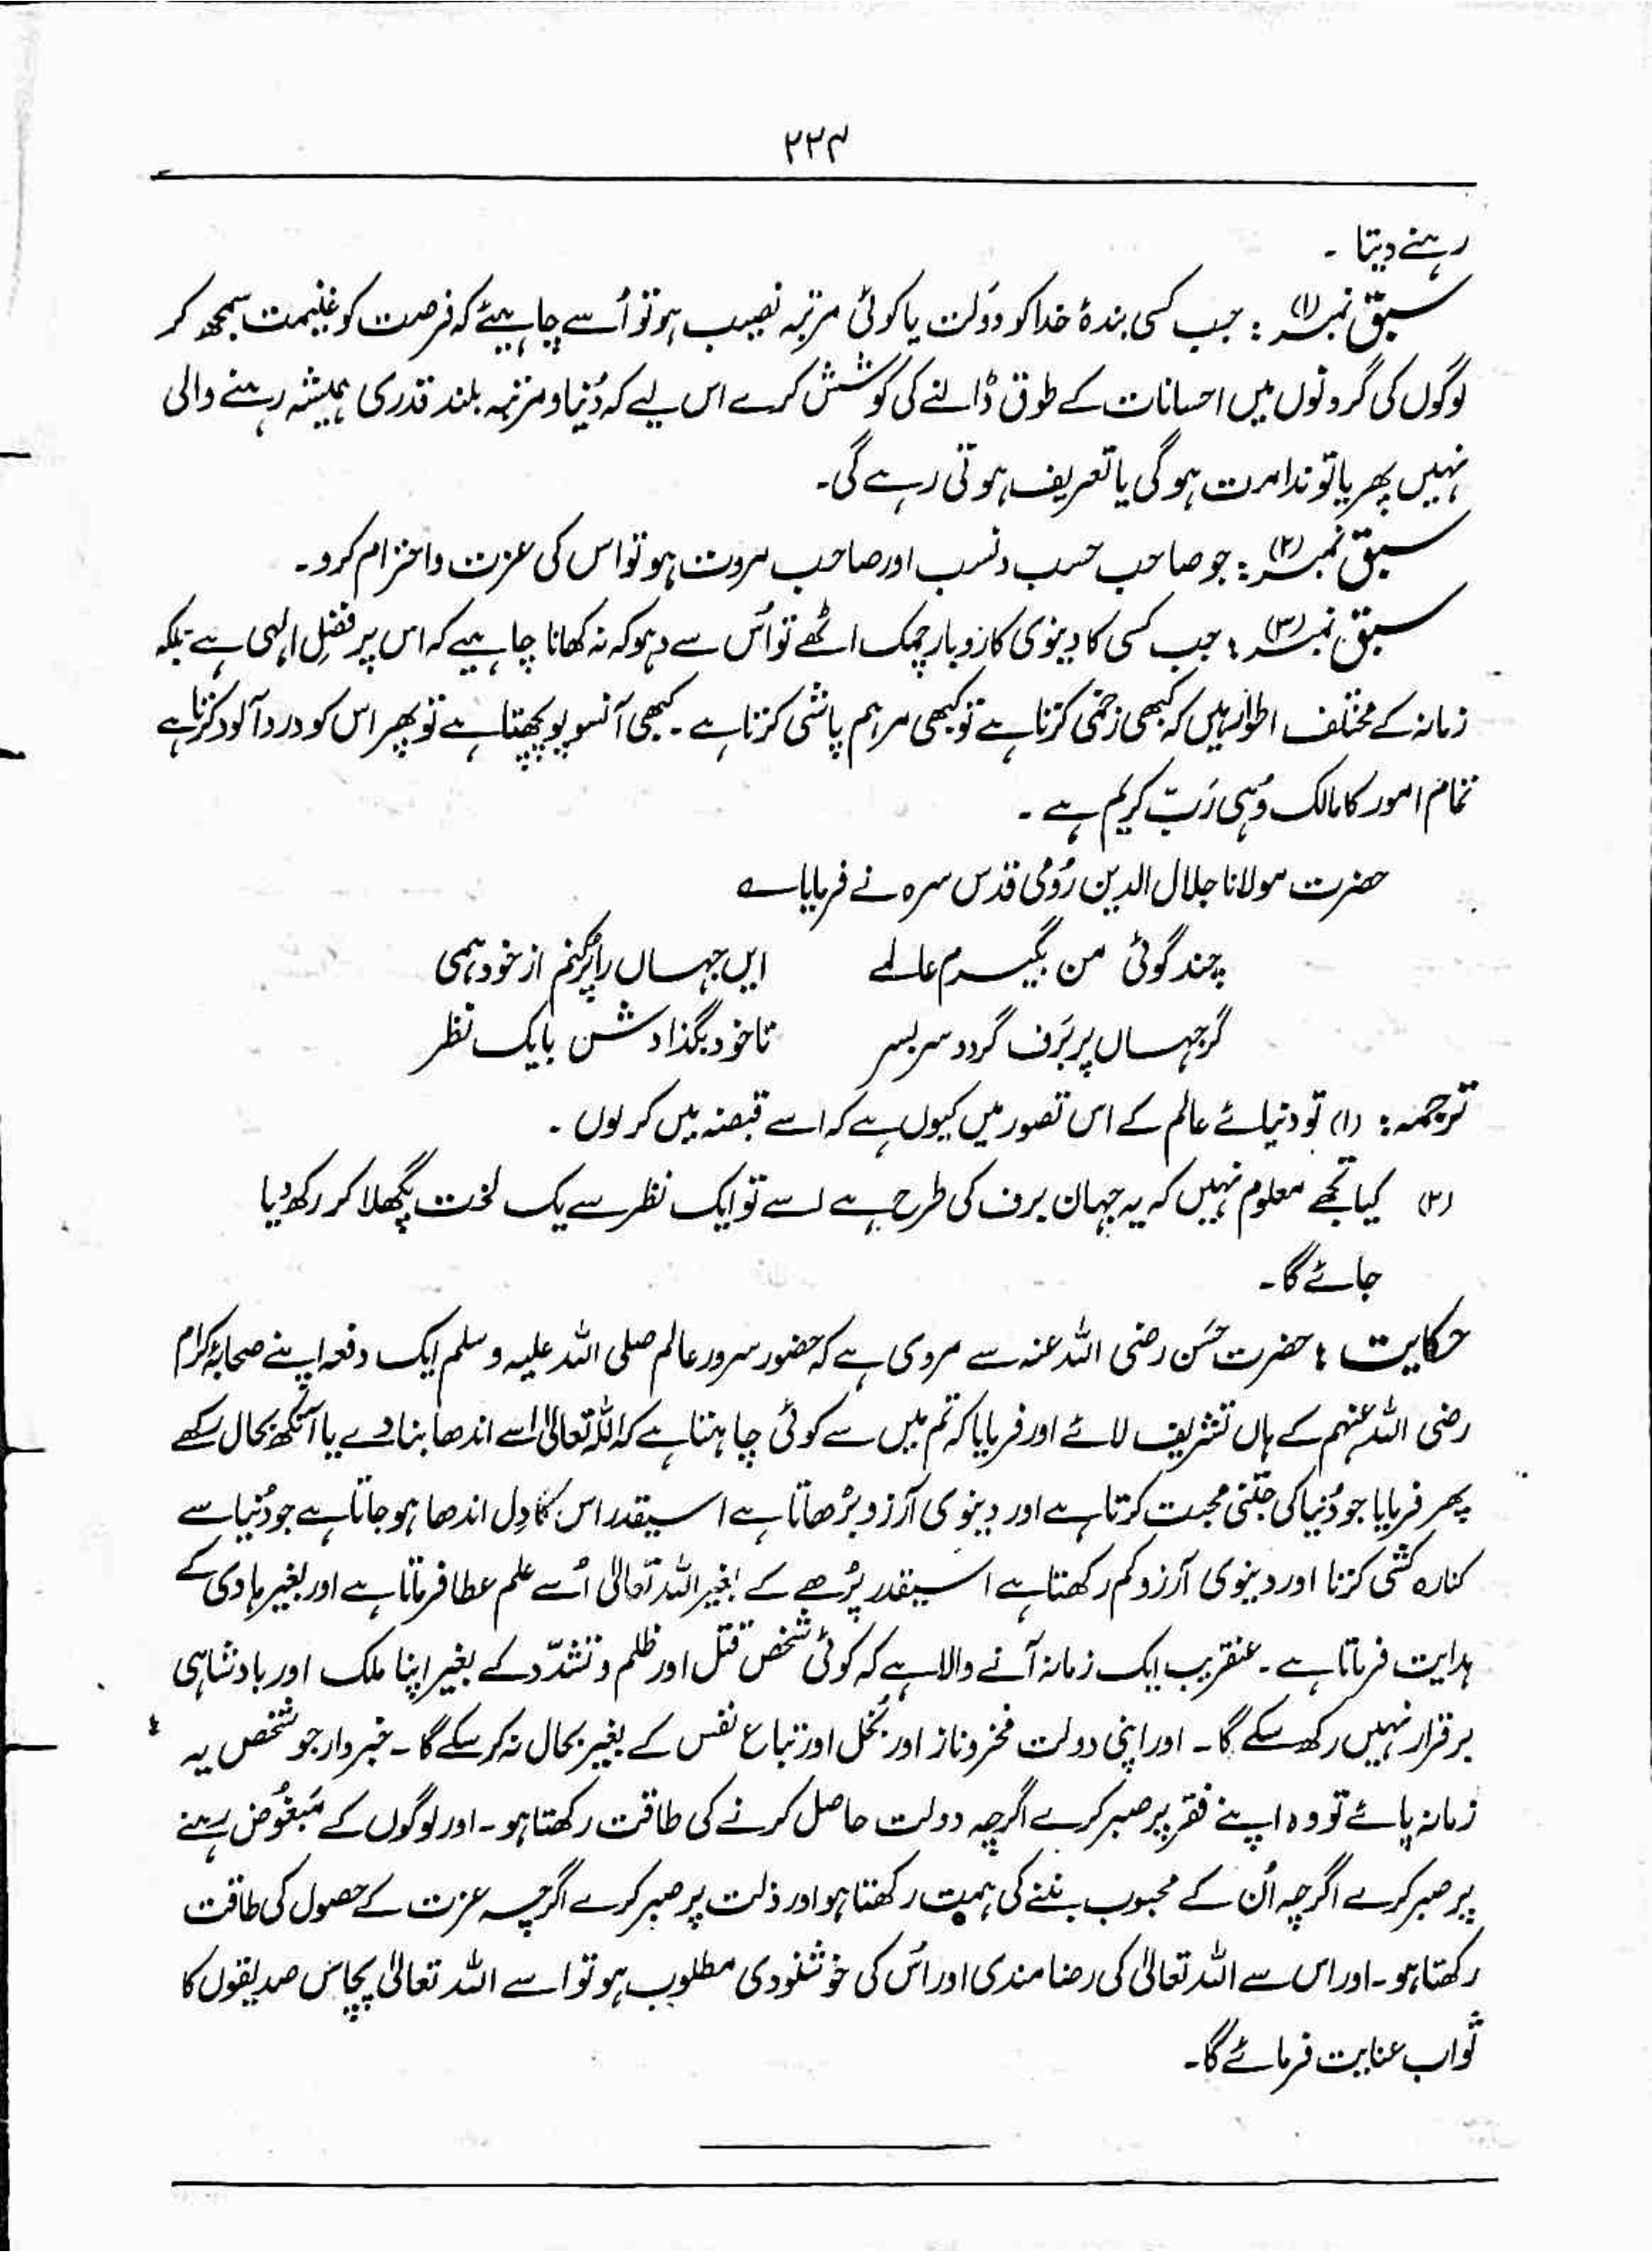 ۲۲۴
رہنے دیتا ۔
سبق نمبر (۱) : جب کسی بندۂ خدا کو دَولت یا کوئی مرتبہ نصیب ہو تو اُسے چاہیئے کہ فرصت کو غنیمت سمجھ کر
لوگوں کی گردنوں میں احسانات کے طوق ڈالنے کی کوشش کرے اس لیے کہ دُنیا و مرتبہ بلند قدری ہمیشہ رہنے والی
نہیں پھر یا تو ندامت ہو گی یا تعریف ہوتی رہے گی۔
سبق نمبر (۲) : جو صاحب حسب و نسب اور صاحب مروت ہو تو اس کی عزت و احترام کرو ۔
سبق نمبر (۳) : جب کسی کا دینوی کاروبار چمک اٹھے تو اُس سے دہوکہ نہ کھانا چاہیے کہ اس پر فضلِ الٰہی ہے بلکہ
زمانہ کے مختلف اطوار ہیں کہ کبھی زخمی کرتا ہے تو کبھی مرہم پاشی کرتا ہے ۔ کبھی آنسو پونچھتا ہے تو پھر اس کو درد آلود کرتا ہے
تمام امور کا مالک وُہی رَبّ کریم ہے ۔
حضرت مولانا جلال الدین رُومی قدس سرہ نے فرمایا ؎
چند گوئی من بگیرم عالمے   ایں جہاں را پُر کنم از خود ہمی
گر جہاں پر بَرف گردد سر بسر   تا خود بگذادش بایک نظر
ترجمہ : (۱) تو دنیائے عالم کے اس تصور میں کیوں ہے کہ اسے قبضہ میں کر لوں ۔
(۲) کیا تجھے معلوم نہیں کہ یہ جہان برف کی طرح ہے اسے تو ایک نظر سے یک لخت پگھلا کر رکھ دیا
جائے گا ۔
حکایت : حضرت حسَن رضی اللہ عنہ سے مروی ہے کہ حضور سرور عالم صلی اللہ علیہ وسلم ایک دفعہ اپنے صحابۂ کرام
رضی اللہ عنہم کے ہاں تشریف لائے اور فرمایا کہ تم میں سے کوئی چاہتا ہے کہ اللہ تعالیٰ اسے اندھا بنا دے یا آنکھ بحال رکھے
پھر فرمایا جو دُنیا کی جتنی محبت کرتا ہے اور دینوی آرزو بڑھاتا ہے اسیقدر اس کا دِل اندھا ہو جاتا ہے جو دُنیا سے
کنارہ کشی کرتا اور دینوی آرزو کم رکھتا ہے اسیقدر پڑھے کے بغیر اللہ تعالیٰ اُسے علم عطا فرماتا ہے اور بغیر ہادی کے
ہدایت فرماتا ہے ۔ عنقریب ایک زمانہ آنے والا ہے کہ کوئی شخص قتل اور ظلم و تشدّد کے بغیر اپنا ملک اور بادشاہی
برقرار نہیں رکھ سکے گا ۔ اور اپنی دولت فخر و ناز اور بُخل اور تباع نفس کے بغیر بحال نہ کر سکے گا ۔ خبردار جو شخص یہ
زمانہ پائے تو وہ اپنے فقر پر صبر کرے اگرچہ دولت حاصل کرنے کی طاقت رکھتا ہو ۔ اور لوگوں کے مَبغُوض رہنے
پر صبر کرے اگرچہ اُن کے محبوب بننے کی ہمت رکھتا ہو اور ذلت پر صبر کرے اگرچہ عزت کے حصول کی طاقت
رکھتا ہو ۔ اور اس سے اللہ تعالیٰ کی رضا مندی اور اُس کی خوشنودی مطلوب ہو تو اسے اللہ تعالیٰ پچاس صدیقوں کا
ثواب عنایت فرمائے گا ۔